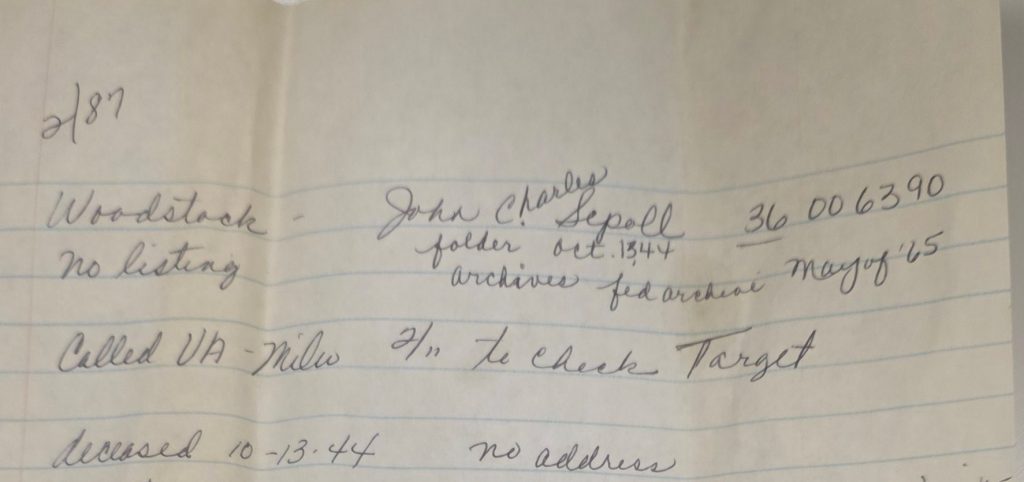 2/87
Woodstock - John Charles Sepoll 36 006390
no listing folder oct. 13, 44
archives fed archive May of '65
Called VA - Milw 2/11 to check Target
deceased 10-13-44 no address